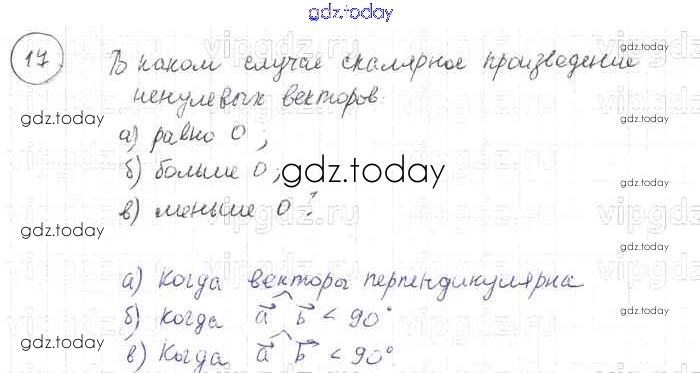 gdz.today
17. В каком случае скалярное произведение
ненулевых векторов:
а) равно 0;
б) больше 0;
в) меньше 0?
а) Когда векторы перпендикулярна
б) Когда a⃗ b⃗ < 90°
в) Когда a⃗ b⃗ < 90°
gdz.today
gdz.today
gdz.today
gdz.today
gdz.today
gdz.today
gdz.today
gdz.today
vipgdz.ru
vipgdz.ru